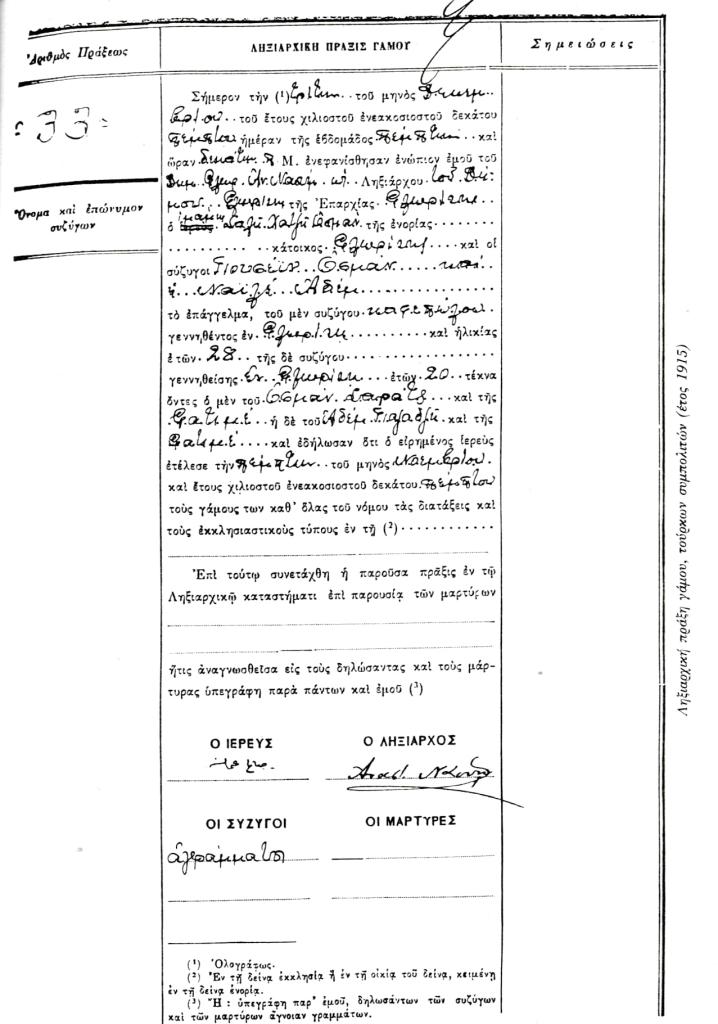 Ἀριθμὸς Πράξεως
ΛΗΞΙΑΡΧΙΚΗ ΠΡΑΞΙΣ ΓΑΜΟΥ
Σημειώσεις
33
Ὄνομα καὶ ἐπώνυμον
συζύγων
Σήμερον τὴν (¹) τρίτην τοῦ μηνὸς Δεκεμ-
βρίου τοῦ ἔτους χιλιοστοῦ ἐνεακοσιοστοῦ δεκάτου
πέμπτου ἡμέραν τῆς ἑβδομάδος Πέμπτην καὶ
ὥραν δεκάτην π. Μ. ἐνεφανίσθησαν ἐνώπιον ἐμοῦ τοῦ
Ληξιάρχου τοῦ Δή-
μου Φλωρίνης τῆς Ἐπαρχίας Φλωρίνης
ὁ Χατζῆ Ὀσμὰν τῆς ἐνορίας
κάτοικος Φλωρίνης καὶ οἱ
σύζυγοι Γιουσεΐν Ὀσμὰν καὶ
ἡ Ναϊλὲ Ἀδὲμ
τὸ ἐπάγγελμα, τοῦ μὲν συζύγου καφεπώλου
γεννηθέντος ἐν Φλωρίνῃ καὶ ἡλικίας
ἐτῶν 28 τῆς δὲ συζύγου
γεννηθείσης ἐν Φλωρίνῃ ἐτῶν 20 τέκνα
ὄντες ὁ μὲν τοῦ Ὀσμὰν Σαρὰτζ καὶ τῆς
Φατιμὲ ἡ δὲ τοῦ Ἀδὲμ καὶ τῆς
Φατιμὲ καὶ ἐδήλωσαν ὅτι ὁ εἰρημένος ἱερεὺς
ἐτέλεσε τὴν πέμπτην τοῦ μηνὸς Νοεμβρίου
καὶ ἔτους χιλιοστοῦ ἐνεακοσιοστοῦ δεκάτου πέμπτου
τοὺς γάμους των καθ' ὅλας τοῦ νόμου τὰς διατάξεις καὶ
τοὺς ἐκκλησιαστικοὺς τύπους ἐν τῇ (²)
Ἐπὶ τούτῳ συνετάχθη ἡ παροῦσα πρᾶξις ἐν τῷ
Ληξιαρχικῷ καταστήματι ἐπὶ παρουσίᾳ τῶν μαρτύρων
ἥτις ἀναγνωσθεῖσα εἰς τοὺς δηλώσαντας καὶ τοὺς μάρ-
τυρας ὑπεγράφη παρὰ πάντων καὶ ἐμοῦ (³)
Ο ΙΕΡΕΥΣ
Ο ΛΗΞΙΑΡΧΟΣ
ΟΙ ΣΥΖΥΓΟΙ
ΟΙ ΜΑΡΤΥΡΕΣ
ἀγράμματοι
(¹) Ὁλογράφως.
(²) Ἐν τῇ δεῖνα ἐκκλησίᾳ ἢ ἐν τῇ οἰκίᾳ τοῦ δεῖνα, κειμένῃ
ἐν τῇ δεῖνα ἐνορίᾳ.
(³) Ἢ : ὑπεγράφη παρ' ἐμοῦ, δηλωσάντων τῶν συζύγων
καὶ τῶν μαρτύρων ἄγνοιαν γραμμάτων.
Ληξιαρχική πράξη γάμου, τούρκων συμπολιτών (έτος 1915)